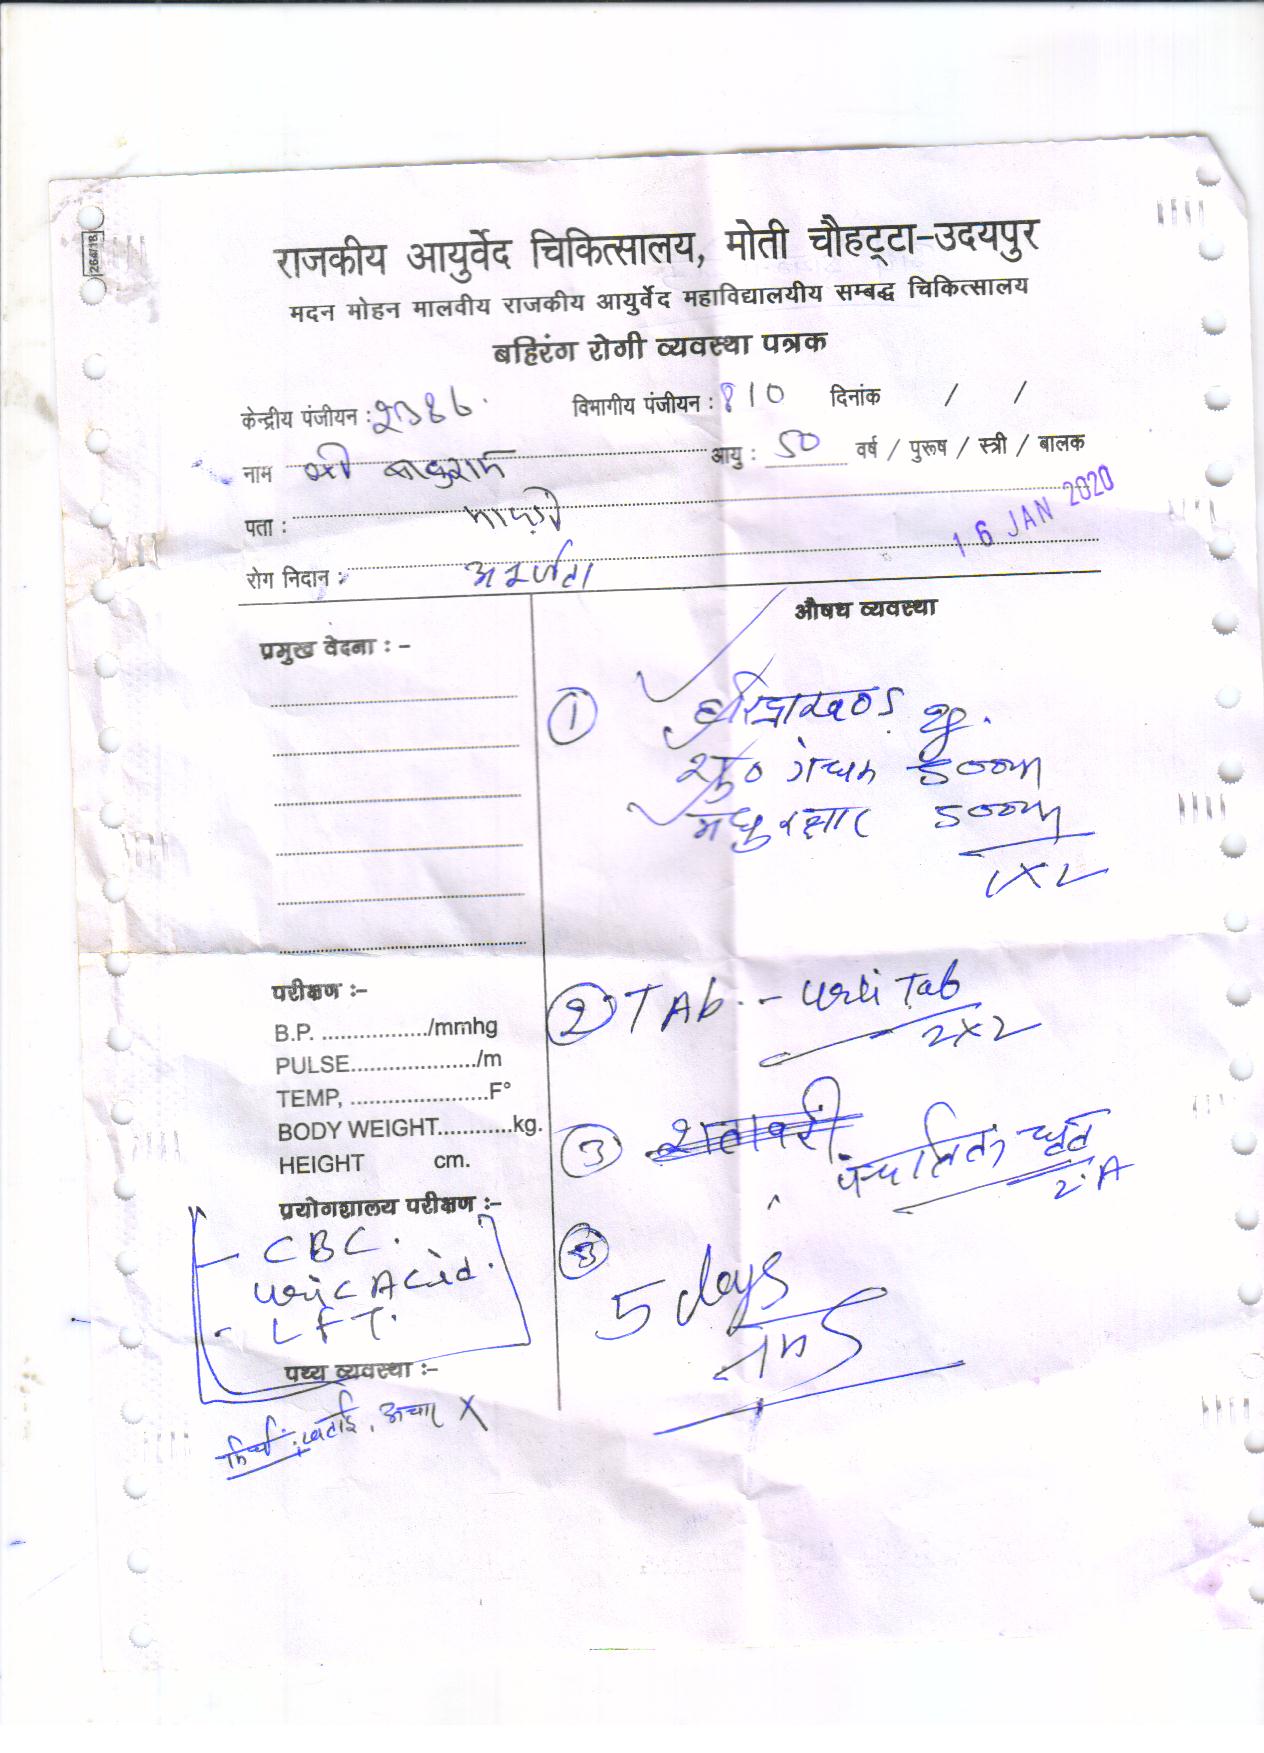 264/18
राजकीय आयुर्वेद चिकित्सालय, मोती चौहट्टा-उदयपुर
मदन मोहन मालवीय राजकीय आयुर्वेद महाविद्यालयीय सम्बद्ध चिकित्सालय
बहिरंग रोगी व्यवस्था पत्रक
केन्द्रीय पंजीयन : विभागीय पंजीयन : 810 दिनांक / /
नाम श्री बाबुराम आयु : 50 वर्ष / पुरूष / स्त्री / बालक
पता :
16 JAN 2020
रोग निदान :
औषध व्यवस्था
प्रमुख वेदना : -
① हरिद्राखण्ड
शु० गंधक 500mg
500mg
1X2
परीक्षण :-
B.P. ................/mmhg
PULSE...................../m
TEMP, ......................F°
BODY WEIGHT............kg.
HEIGHT cm.
② TAb. - Urli Tab
2X2
③ शतावरी पंचतिक्त घृत
प्रयोगशालय परीक्षण :-
CBC.
Uric Acid.
LFT.
5 days
पथ्य व्यवस्था :-
मिर्च, खटाई, अचार X